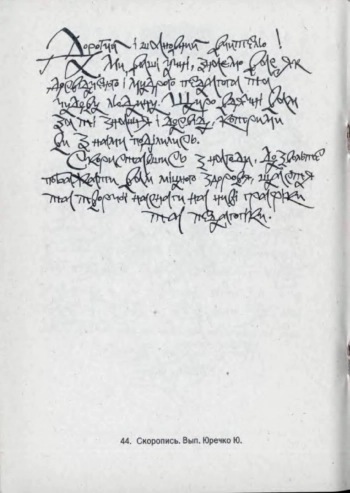 Дорогий і шановний вчителю!
Ми, ваші учні, знаємо вас як
досвідченого і мудрого педагога та
чудову людину. Щиро вдячні вам
за ті знання і досвід, котрими
ви з нами поділились.
Скориставшись з нагоди, дозвольте
побажати вам міцного здоров'я, щастя
та творчої наснаги на ниві графіки
та педагогіки.
44. Скоропись. Вып. Юречко Ю.